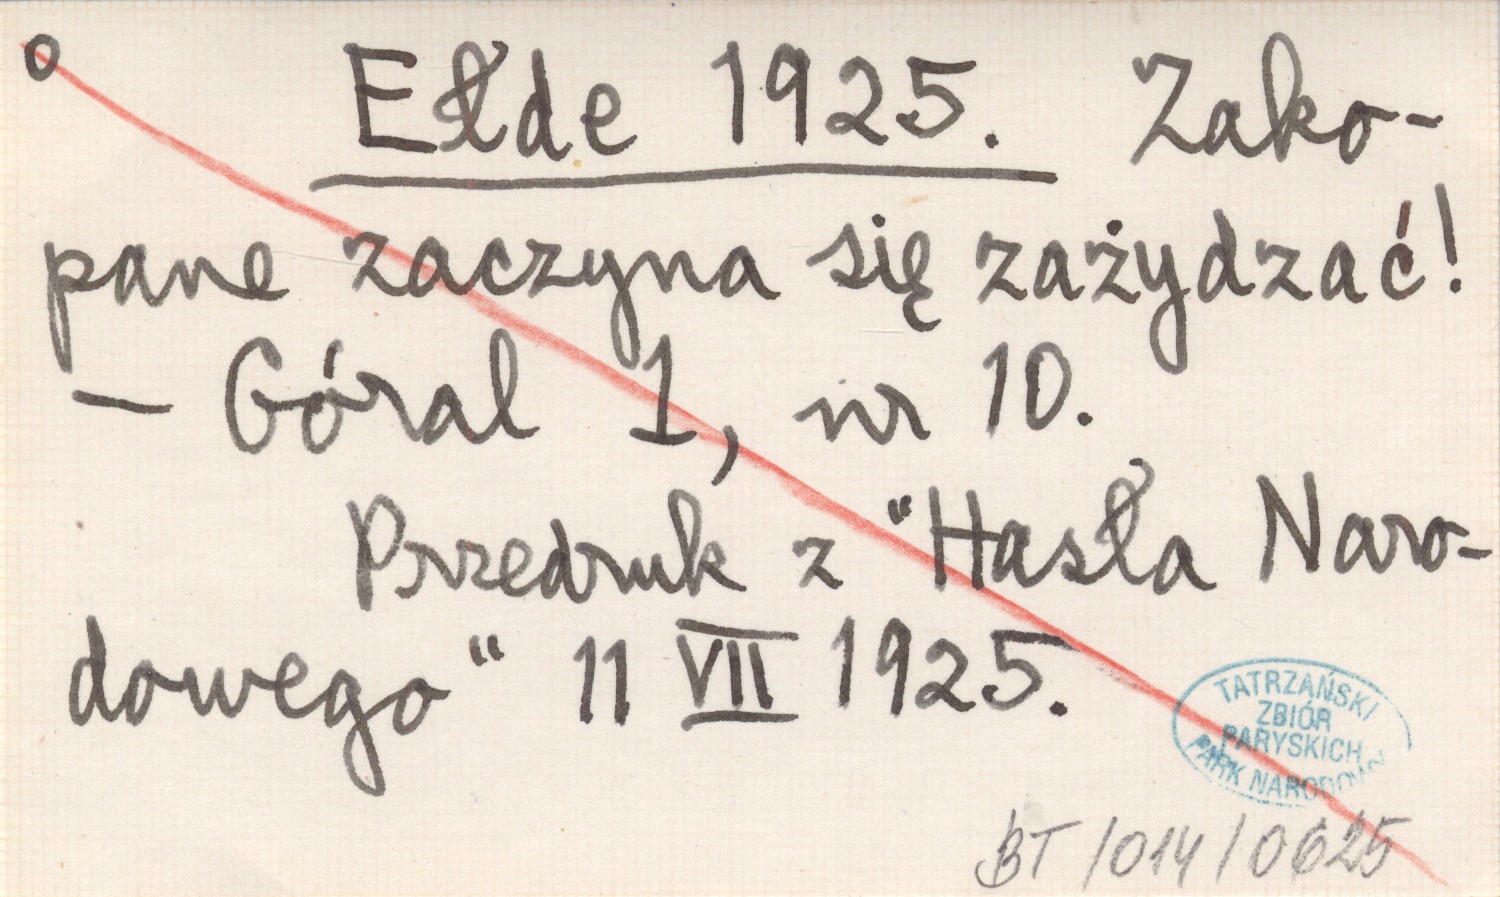 o Ełde 1925. Zako-
pane zaczyna się zażydzać!
— Góral 1, nr 10.
Przedruk z "Hasła Naro-
dowego" 11 VII 1925.
TATRZAŃSKI
ZBIÓR
PARYSKICH
PARK NARODOWY
BT/014/0625